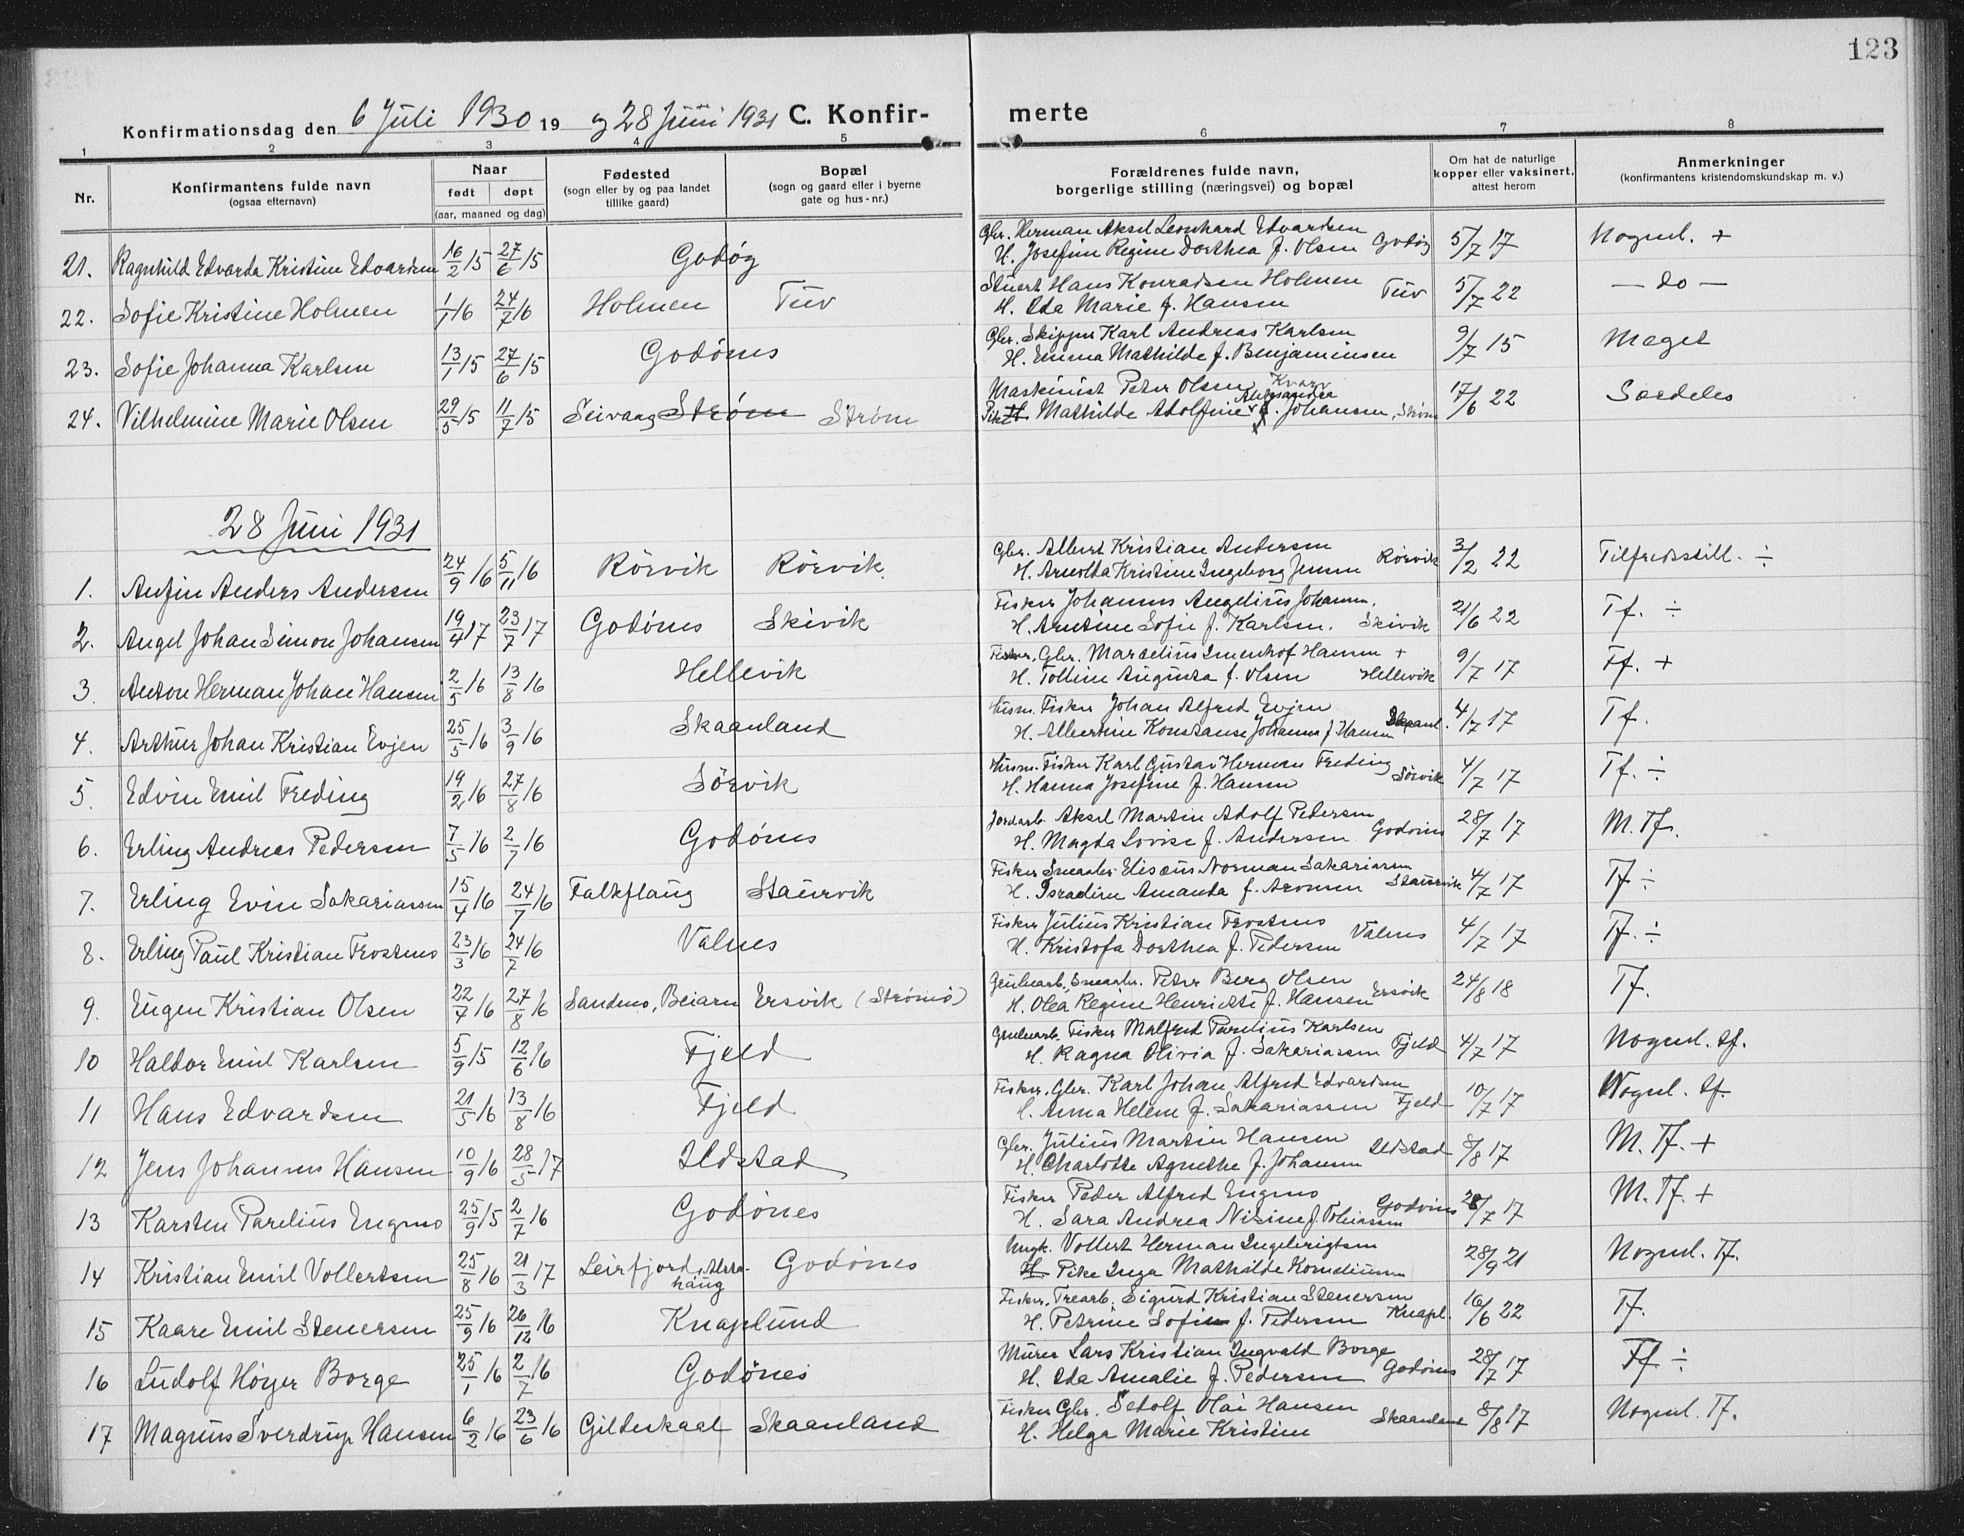 123
Konfirmationsdag den 6 Juli 1930 19 og 28 Juni 1931 C. Konfir- merte
1 2 3 4 5 6 7 8
Nr. Konfirmantens fulde navn (ogsaa efternavn) Naar født døpt (aar, maaned og dag) Fødested (sogn eller by og paa landet tillike gaard) Bopæl (sogn og gaard eller i byerne gate og hus-nr.) Forældrenes fulde navn, borgerlige stilling (næringsvei) og bopæl Om hat de naturlige kopper eller vaksinert, attest herom Anmerkninger (konfirmantens kristendomskundskap m. v.)
Gbr. Herman Aksel Leonhard Edvardsen
21. Ragnhild Edvarda Kristine Edvardsen 16/2 15 27/6 15 Godøy H. Josefine Regine Dorthea f. Olsen Godøy 5/7 17 Nogenl. +
Stuert Hans Konradsen Holmen
22. Sofie Kristine Holmen 1/1 16 24/7 16 Holmen Tuv H. Ida Marie f. Hansen Tuv 5/7 22 — do —
Gbr. Skipper Karl Andreas Karlsen
23. Sofie Johanna Karlsen 13/1 15 27/6 15 Godønes H. Emma Mathilde f. Benjaminsen 9/7 15 Meget
Maskinist Peter Olsen Kvarv
24. Vilhelmine Marie Olsen 29/5 15 11/7 15 Seivaag Strøm Strøm Pike H. Mathilde Adolfine Aleksandra f. Johansen, Strøm 17/6 22 Særdeles
28 Juni 1931
Gbr. Albert Kristian Andersen
1. Anfin Anders Andersen 24/9 16 5/11 16 Rörvik Rörvik H. Arnolda Kristine Ingeborg Jensen Rörvik 3/2 22 Tilfredsstill. ÷
Fisker Johannes Angelius Johansen.
2. Angel Johan Simon Johansen 19/4 17 23/7 17 Godönes Skivik H. Antine Sofie f. Karlsen. Skivik 21/6 22 Tf. ÷
Fisker, Gbr. Marselius Imenhof Hansen +
3. Anton Herman Johan Hansen 2/5 16 13/8 16 Hellevik H. Tolline Augusta f. Olsen Hellevik 9/7 17 Tf. +
Husm. Fisker Johan Alfred Evjen
4. Arthur Johan Kristian Evjen 25/5 16 3/9 16 Skaanland H. Albertine Konstanse Johanna f Hansen Skaanl. 4/7 17 Tf.
Husm. Fisker Karl Gustav Herman Freding
5. Edvin Emil Freding 19/2 16 27/8 16 Sörvik H. Hanna Josefine f. Hansen Sörvik 4/7 17 Tf. ÷
Jordarb. Aksel Martin Adolf Pedersen
6. Erling Andreas Pedersen 7/5 16 2/7 16 Godönes H. Magda Lovise f. Andersen Godönes 28/7 17 M. Tf.
Fisker Smaabr. Elisæus Norman Sakariassen
7. Erling Evin Sakariassen 15/4 16 24/7 16 Falkflaug Staurvik H. Isradine Amanda f. Aronsen Staurvik 4/7 17 Tf ÷
Fisker Julius Kristian Trostens
8. Erling Paul Kristian Trostens 23/3 16 24/7 16 Valnes H. Kristofa Dorthea f. Pedersen Valnes 4/7 17 Tf. ÷
Grubearb., Smaabr. Peter Berg Olsen
9. Eugen Kristian Olsen 22/4 16 27/8 16 Sandnes, Beiarn Ersvik (Strömö) H. Olea Regine Henriette f. Hansen Ersvik 24/8 18 Tf.
Grubearb. Fisker Malfred Parelius Karlsen
10 Haldor Emil Karlsen 5/9 15 12/6 16 Fjeld H. Ragna Olivia f. Sakariassen Fjeld 4/7 17 Nogenl. tf.
Fisker, Gbr. Karl Johan Alfred Edvardsen
11 Hans Edvardsen 21/5 16 13/8 16 Fjeld H. Anna Helene f. Sakariassen Fjeld 10/7 17 Nogenl. tf.
Gbr. Julius Martin Hansen
12 Jens Johannes Hansen 10/9 16 28/5 17 Ildstad H. Charlotte Agnethe f. Johansen Ildstad 8/8 17 M. Tf. +
Fisker Peder Alfred Engmo
13 Karsten Parelius Engmo 25/9 15 2/7 16 Godönes H. Sara Andrea Nisine f. Tobiassen Godönes 28/7 17 M. Tf. +
Ungk. Vollert Herman Ingebrigtsen
14 Kristian Emil Vollertsen 25/8 16 21/3 17 Leirfjord, Alstahaug Godönes H. Pike Inga Mathilde Korneliussen 28/9 21 Nogenl. Tf.
Fisker, Trearb. Sigurd Kristian Stenersen
15 Kaare Emil Stenersen 25/9 16 26/12 16 Knaplund H. Petrine Sofie f. Pedersen Knapl. 16/6 22 Tf.
Murer Lars Kristian Ingvald Borge
16 Ludolf Höyer Borge 25/1 16 2/7 16 Godönes H. Ida Amalie f. Pedersen Godönes 28/7 17 Tf ÷
Fisker Gbr. Setolf Olai Hansen
17 Magnus Sverdrup Hansen 6/2 16 23/6 16 Gildeskaal Skaanland H. Helga Marie Kristine Skaanland 8/8 17 Nogenl. Tf.